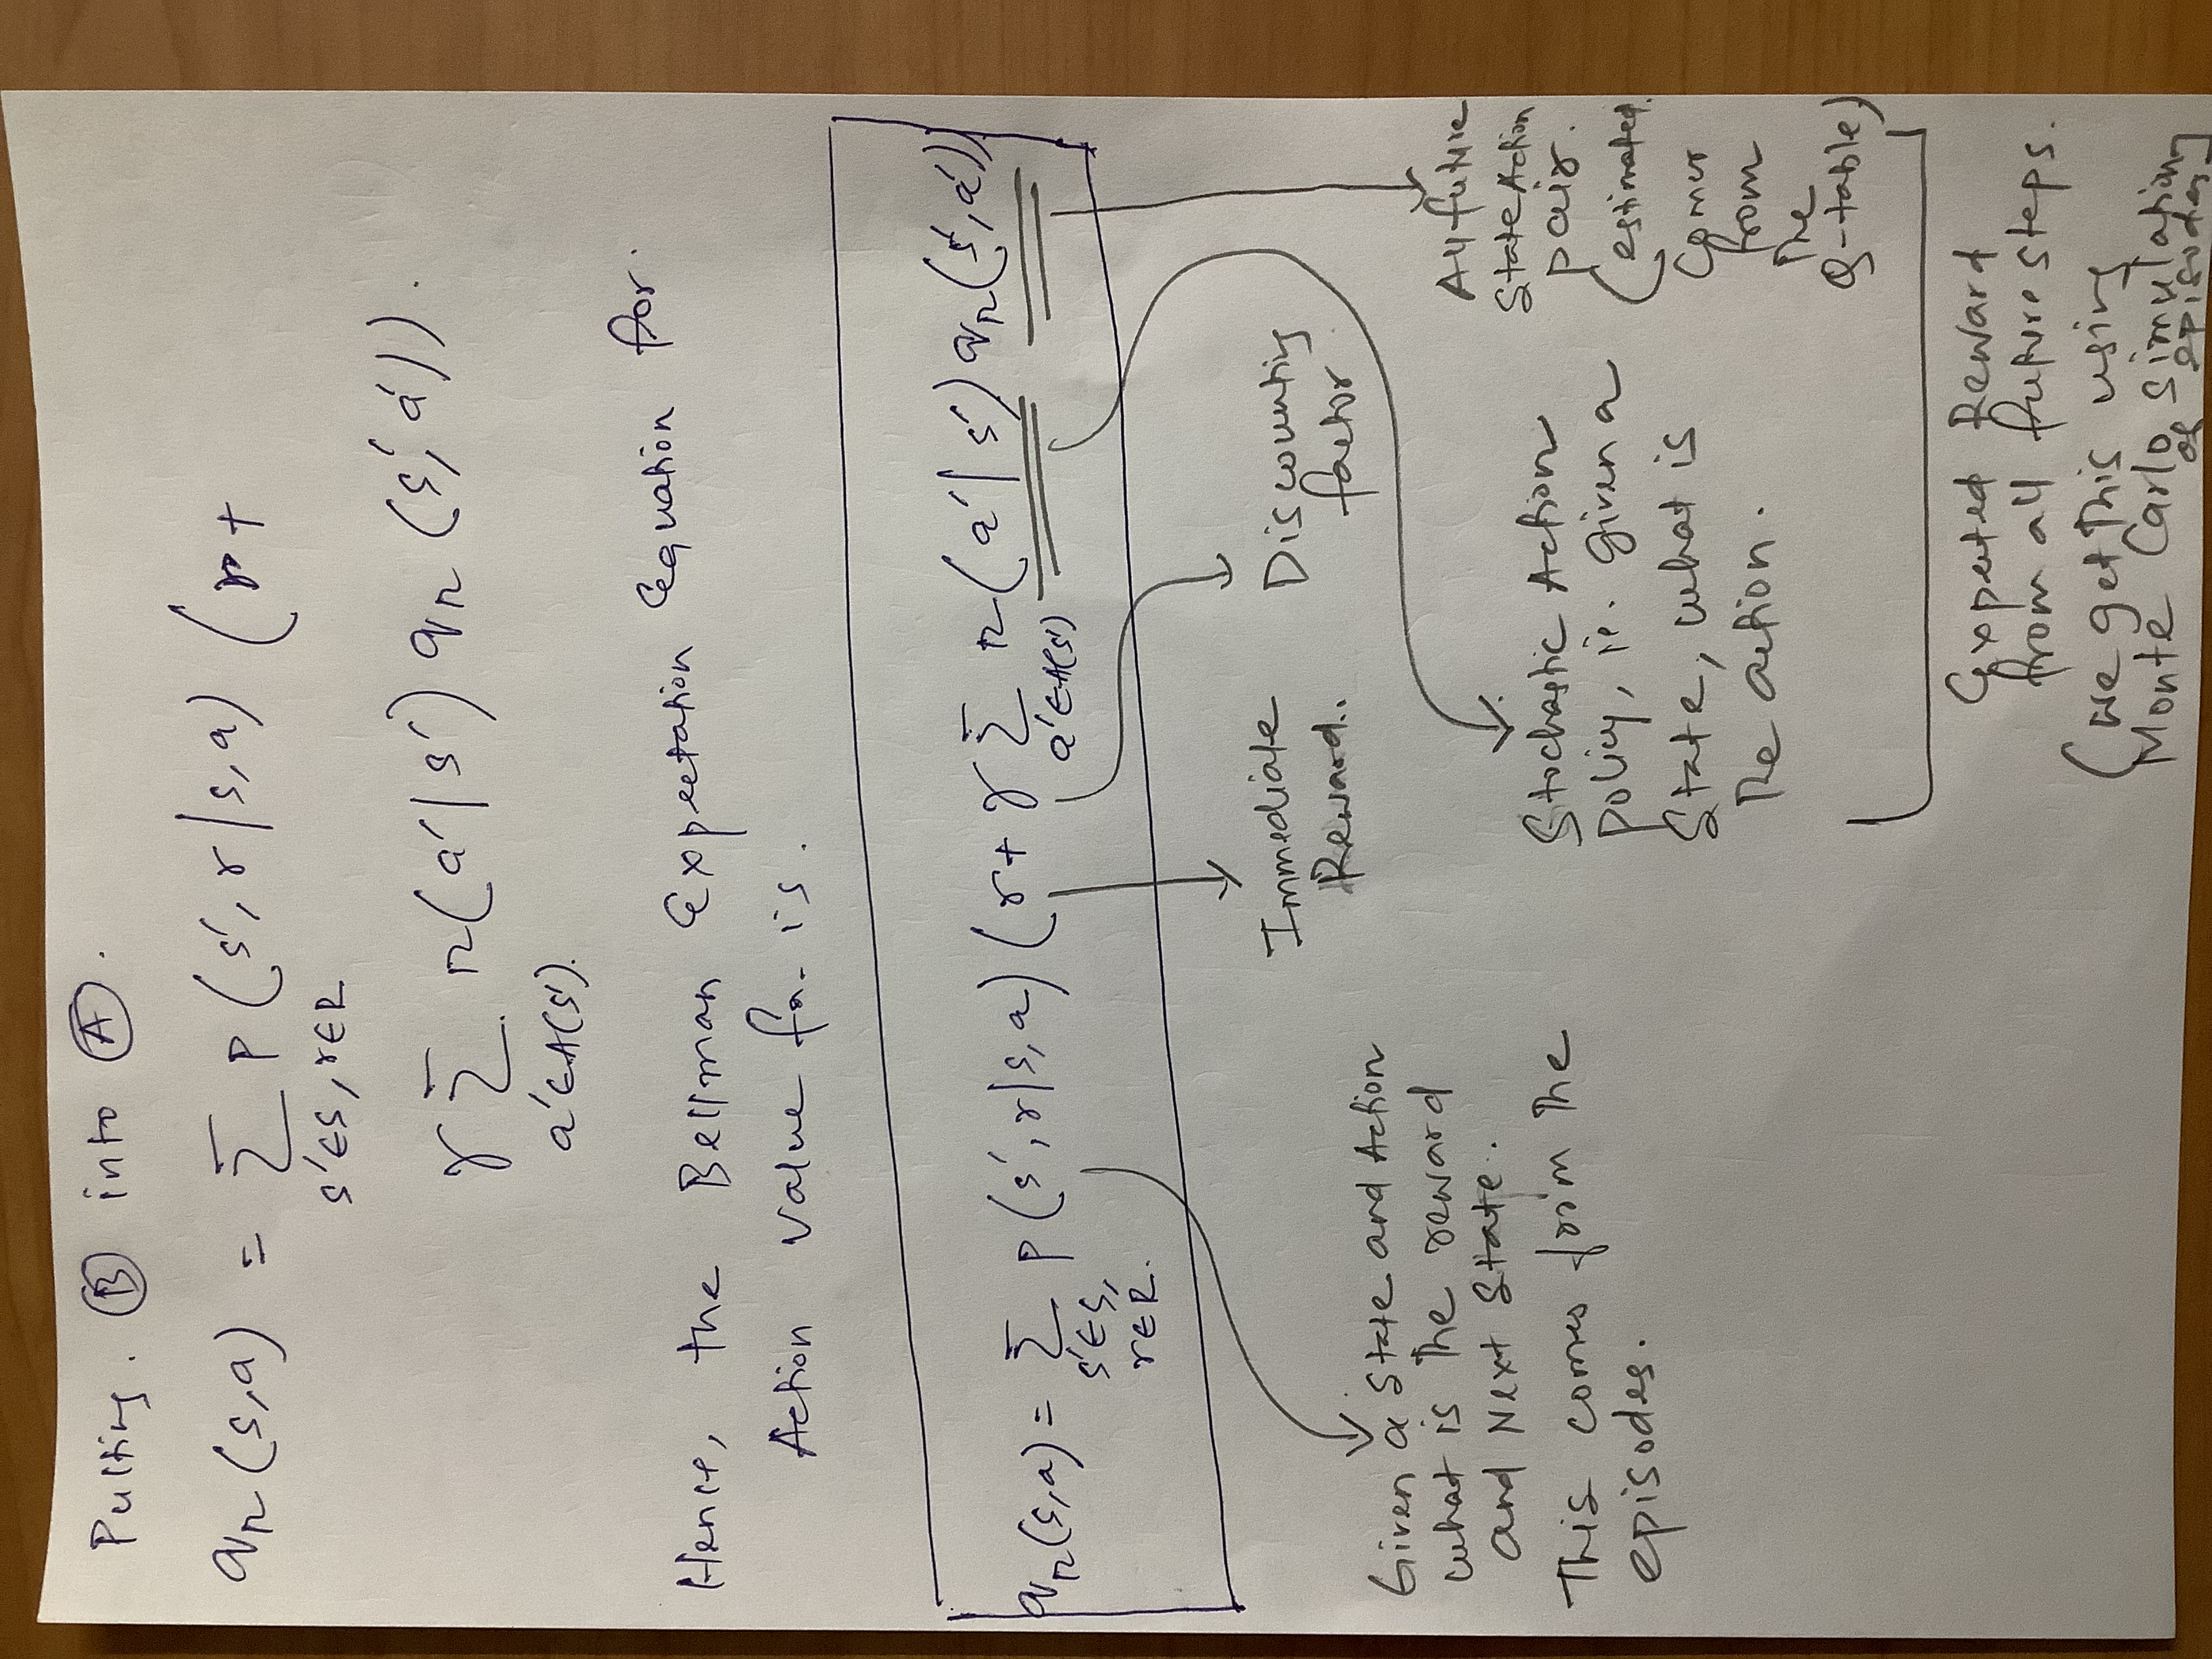 Putting. Ⓑ into Ⓐ.
qπ(s,a) = Σ p(s', r|s,a) (r +
s'∈S, r∈R
γ Σ. π(a'|s') qπ(s',a')).
a'∈A(s').
Hence, the Bellman Expectation Equation for.
Action value fn. is.
qπ(s,a) = Σ p(s', r|s,a) (r + γ Σ π(a'|s') qπ(s',a'))
s'∈S, a'∈A(s')
r∈R.
Immediate Discounting
Reward.. factor
Given a State and Action
what is the reward
and Next State.
This comes from the
episodes.
Stochastic Action
policy, ie. given a
State, what is
the action.
All future
State Action
pair.
(estimated.
Comes
from
the
Q-table)
Expected Reward
from all future steps.
(we get this using
Monte Carlo simulation
of episodes)